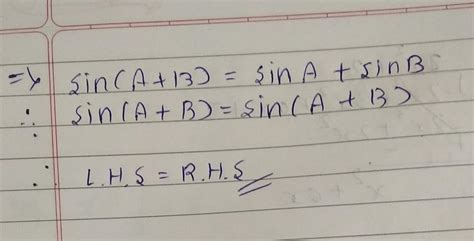 => sin(A+B) = sinA + sinB
∴ sin(A+B) = sin(A+B)
∴ L.H.S = R.H.S